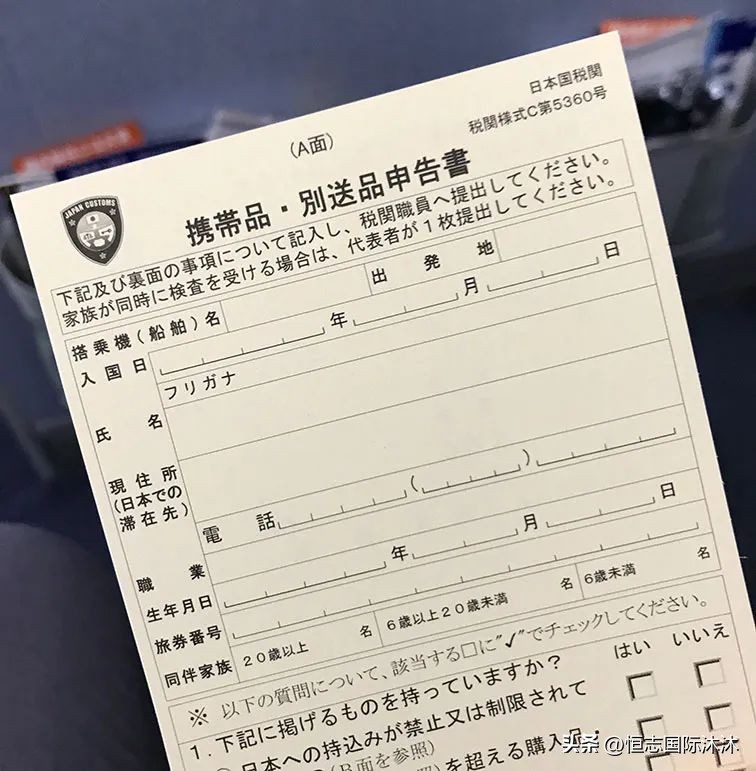 日本国税関
税関様式C第5360号
(A面)
JAPAN CUSTOMS
携帯品・別送品申告書
下記及び裏面の事項について記入し、税関職員へ提出してください。
家族が同時に検査を受ける場合は、代表者が1枚提出してください。
搭乗機(船舶)名 出発地
入国日 年 月 日
フリガナ
氏名
現住所
(日本での
滞在先)
電話 ( )
職業
生年月日 年 月 日
旅券番号
同伴家族 20歳以上 名 6歳以上20歳未満 名 6歳未満 名
※ 以下の質問について、該当する□に"✓"でチェックしてください。
1.下記に掲げるものを持っていますか? はい いいえ
日本への持込みが禁止又は制限されて
(B面を参照)
を超える購入
头条 @恒志国际沐沐